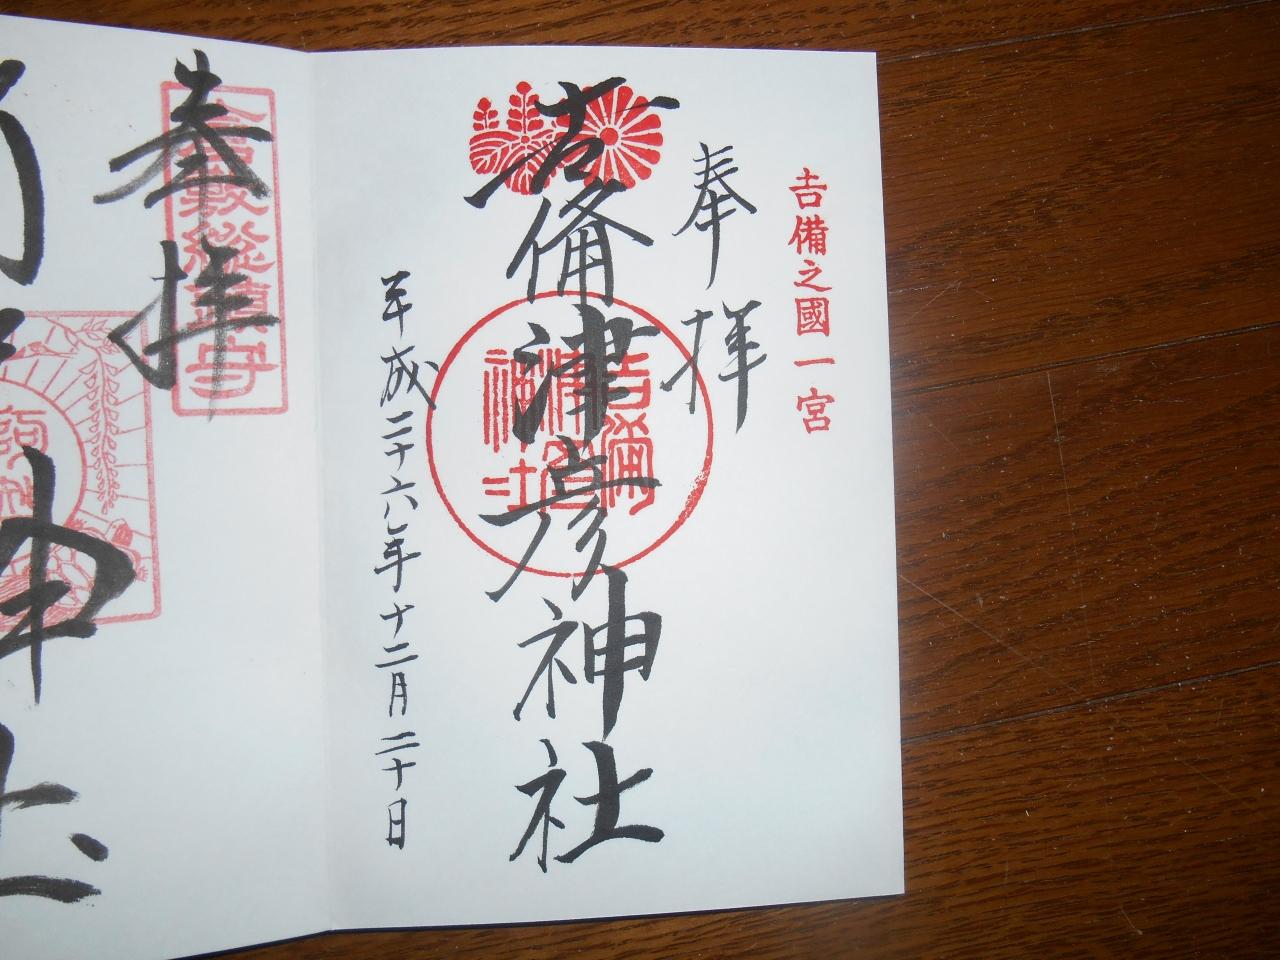 吉備之國一宮
奉拝
吉備津彦神社
吉備
津彦
神社
平成二十六年十二月二十日
倉敷総鎮守
奉拝
神社